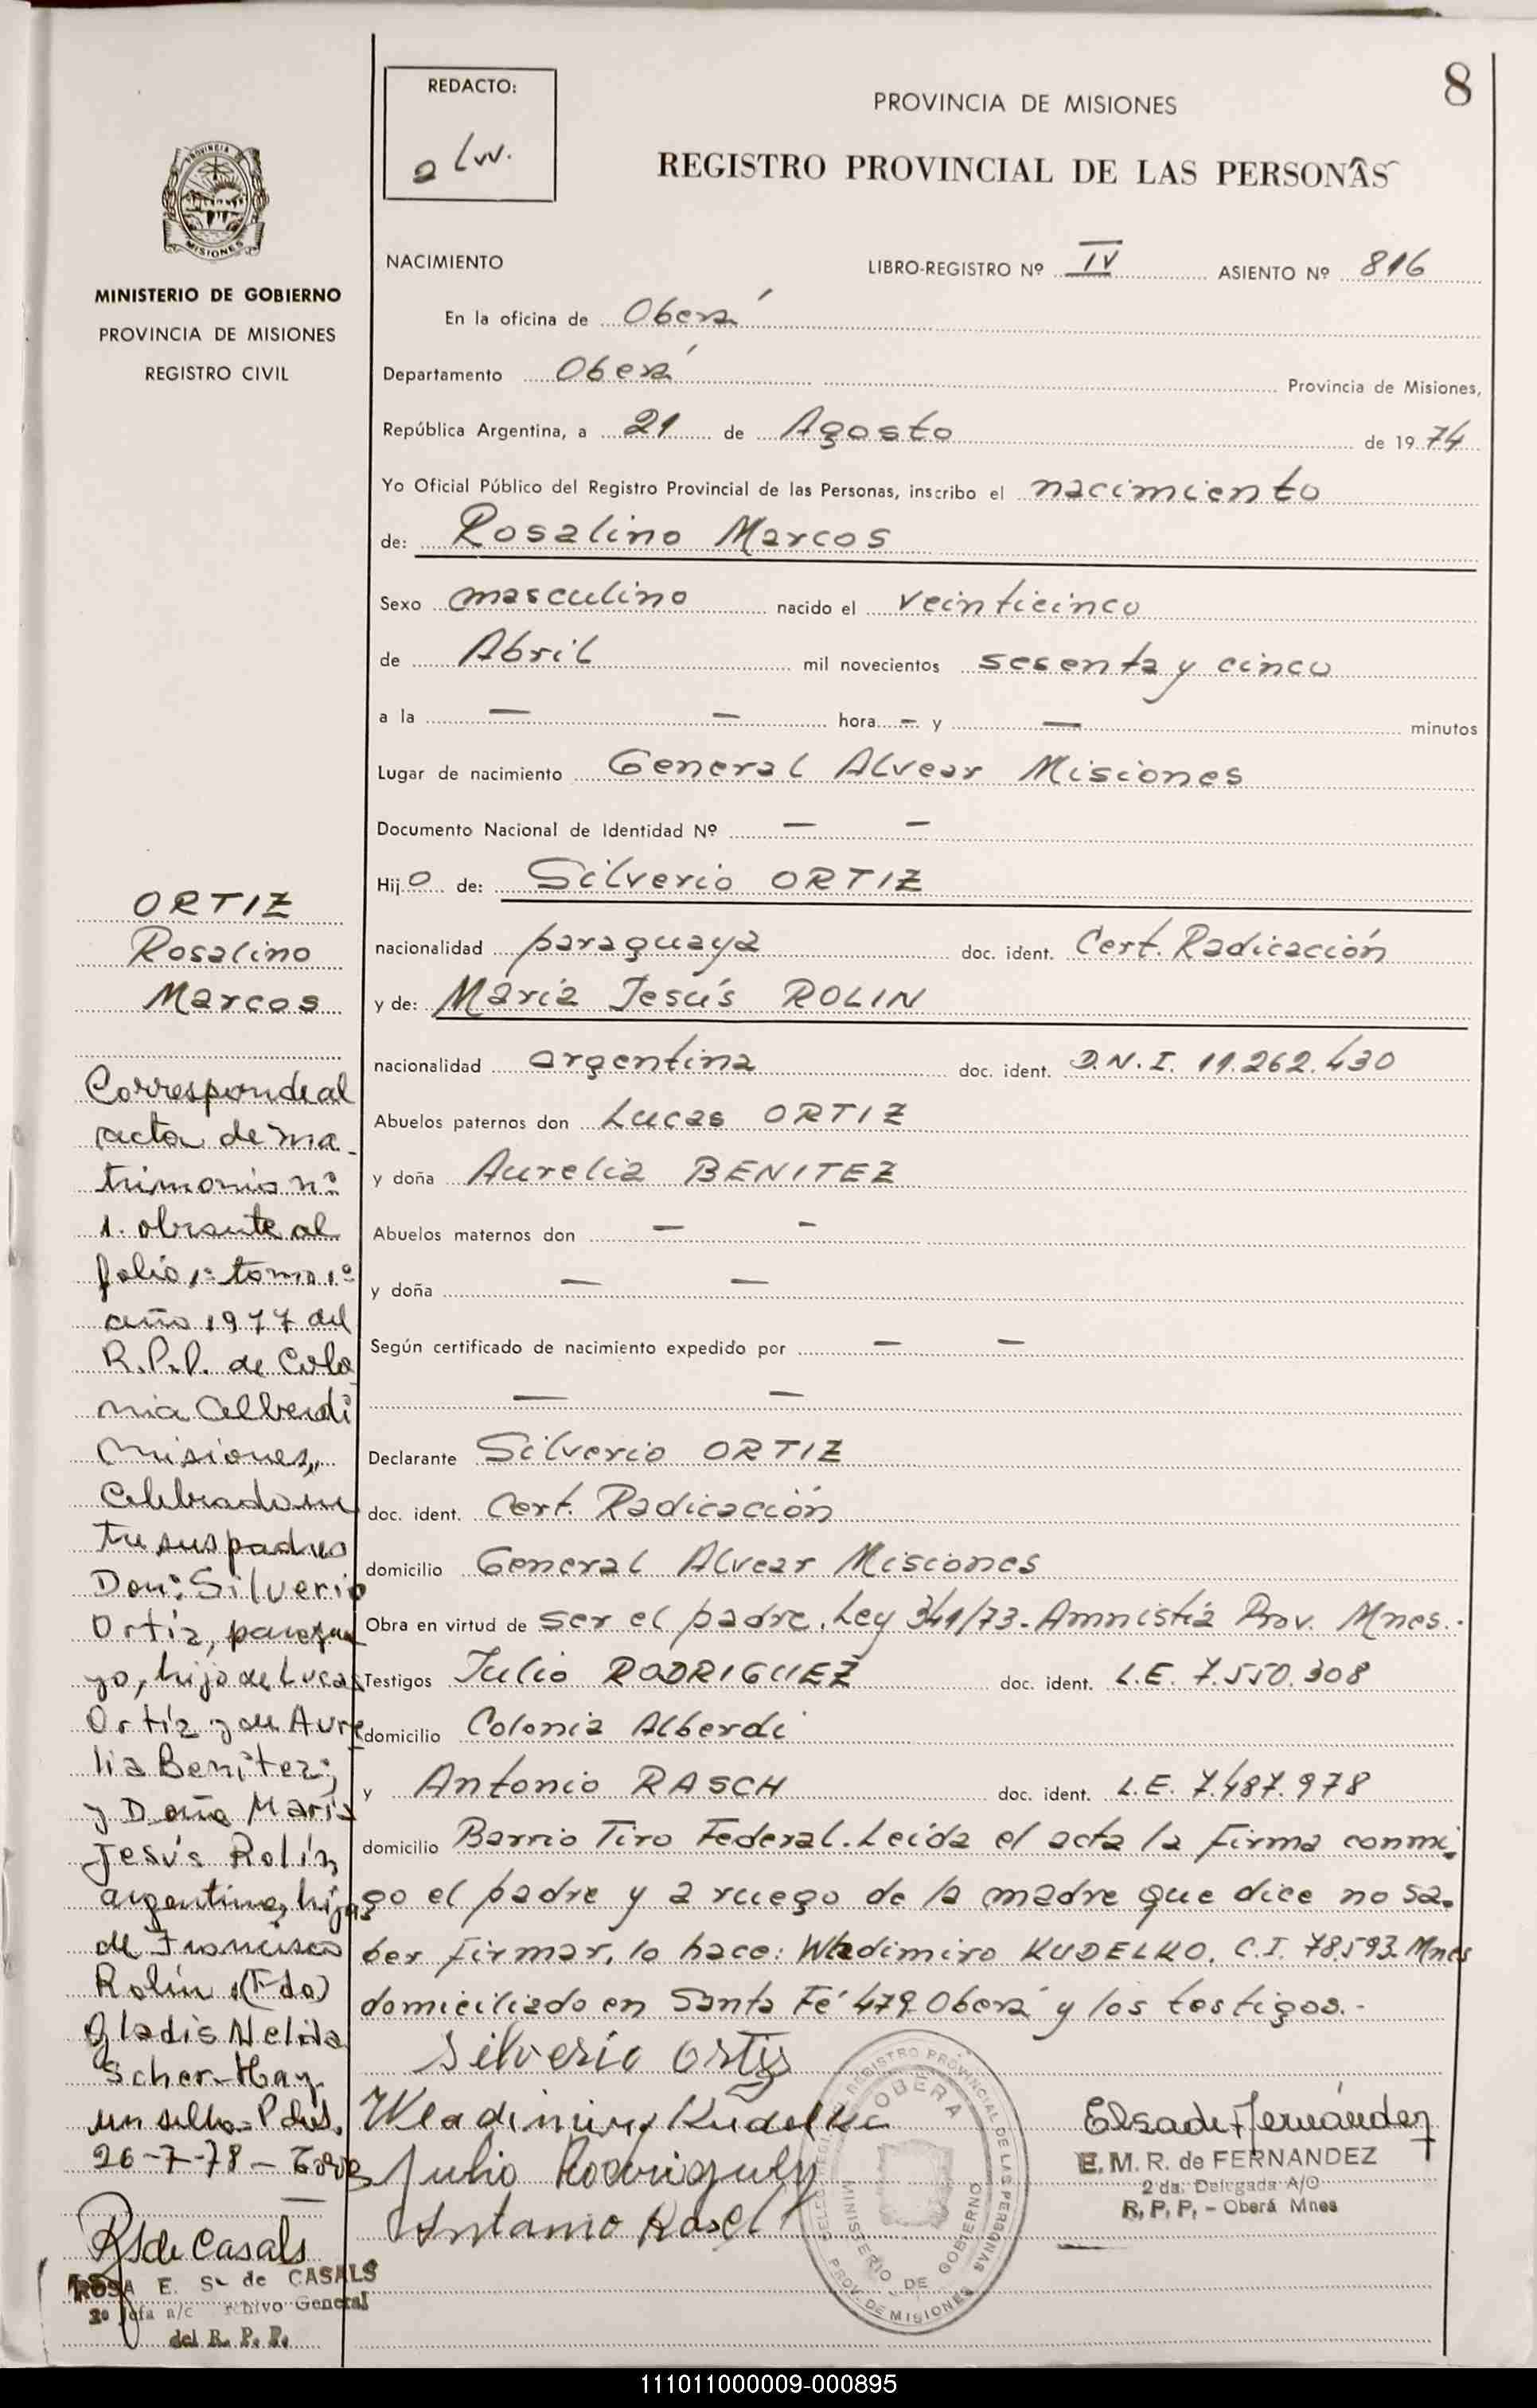 8
REDACTO:
PROVINCIA DE MISIONES
REGISTRO PROVINCIAL DE LAS PERSONAS
PROVINCIA
MISIONES
MINISTERIO DE GOBIERNO
PROVINCIA DE MISIONES
REGISTRO CIVIL
NACIMIENTO LIBRO-REGISTRO Nº IV ASIENTO Nº 816
En la oficina de Oberá
Departamento Oberá Provincia de Misiones,
República Argentina, a 21 de Agosto de 1974
Yo Oficial Público del Registro Provincial de las Personas, inscribo el nacimiento
de: Rosalino Marcos
Sexo masculino nacido el veinticinco
de Abril mil novecientos sesenta y cinco
a la — — hora — y — minutos
Lugar de nacimiento General Alvear Misiones
Documento Nacional de Identidad Nº — —
Hijo de: Silverio ORTIZ
nacionalidad paraguaya doc. ident. Cert. Radicación
y de: María Jesús ROLIN
nacionalidad argentina doc. ident. D.N.I. 11.262.430
Abuelos paternos don Lucas ORTIZ
y doña Aurelia BENITEZ
Abuelos maternos don — -
y doña — —
Según certificado de nacimiento expedido por — —
— —
Declarante Silverio ORTIZ
doc. ident. Cert. Radicación
domicilio General Alvear Misiones
Obra en virtud de ser el padre. Ley 341/73-Amnistía Prov. Mnes.-
Testigos Julio RODRIGUEZ doc. ident. L.E. 7.550.308
domicilio Colonia Alberdi
y Antonio RASCH doc. ident. L.E. 7.487.978
domicilio Barrio Tiro Federal. Leída el acta la firma conmi-
go el padre y a ruego de la madre que dice no sa-
ber firmar, lo hace: Wladimiro KUDELKO. C.I. 78.593 Mnes
domiciliado en Santa Fé 479 Oberá y los testigos.-
Silverio Ortiz
Wladimiro Kudelko
Julio Rodriguez
Antonio Rasch
REGISTRO PROVINCIAL DE LAS PERSONAS
OBERA
MINISTERIO DE GOBIERNO
PROV. DE MISIONES
Elsa de Fernández
E. M. R. de FERNANDEZ
2da. Delegada A/O
R. P. P. - Oberá Mnes
ORTIZ
Rosalino
Marcos
Corresponde al
acta de ma-
trimonio nº
1. obrante al
folio 1º tomo 1º
año 1977 del
R.P.P. de Colo
nia Alberdi
Misiones,
Celebrado en
tre sus padres
Don: Silverio
Ortiz, paragua
yo, hijo de Lucas
Ortiz y de Aure
lia Benitez;
y Doña María
Jesús Rolín
argentina, hija
de Francisca
Rolín (Fdo)
Gladis Nelida
Scher-Hay
un sello=
26-7-78 -
R S de Casals
ROSA E. S. de CASALS
2º Jefa a/c Archivo General
del R. P. P.
111011000009-000895